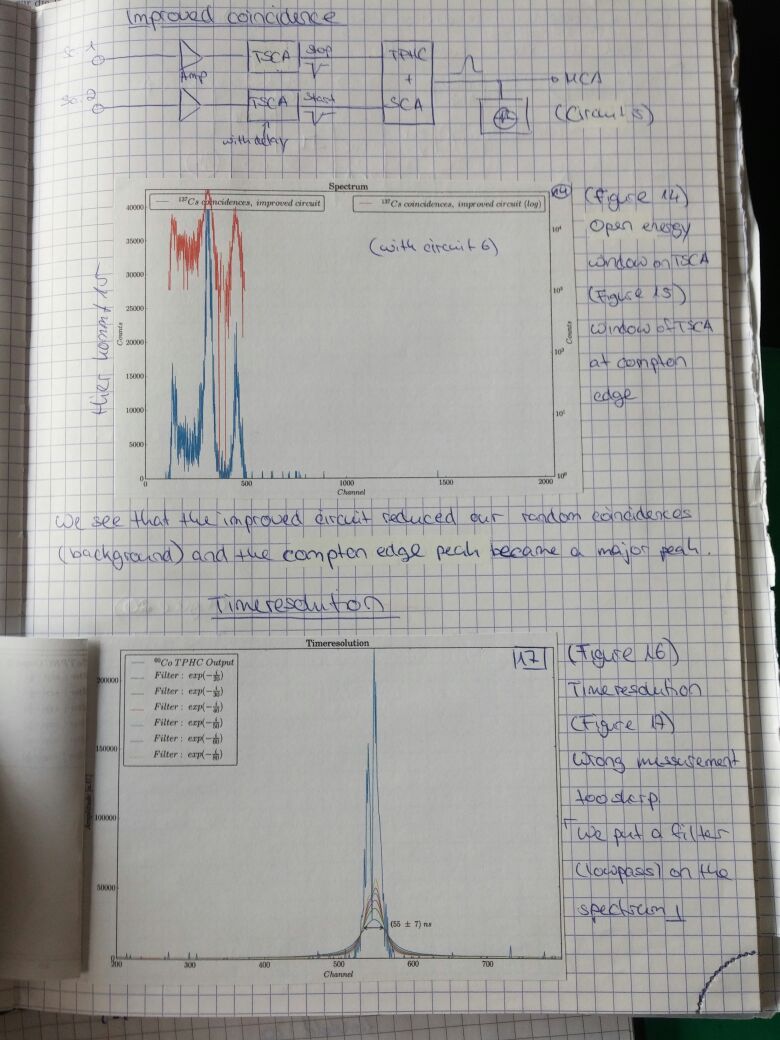 Improved coincidence
Sc. 1
Amp
TSCA
Stop
TPHC
+
SCA
MCA
Sc. 2
TSCA
Start
with delay
(Circuit 5)
Spectrum
¹³⁷Cs coincidences, improved circuit
¹³⁷Cs coincidences, improved circuit (log)
14
(with circuit 6)
Counts
40000
35000
30000
25000
20000
15000
10000
5000
0
10⁴
10³
10³
10¹
10⁰
Counts
0
500
1000
1500
2000
Channel
Hier kommt 15
(Figure 14)
Open energy
window on TSCA
(Figure 15)
window of TSCA
at compton
edge
We see that the improved circuit reduced our random coincidences
(background) and the compton edge peak became a major peak.
Timeresolution
Timeresolution
⁶⁰Co TPHC Output
Filter : exp(-1/20)
Filter : exp(-1/30)
Filter : exp(-1/40)
Filter : exp(-1/50)
Filter : exp(-1/60)
Filter : exp(-1/80)
17
200000
150000
100000
50000
(55 ± 7) ns
200
300
400
500
600
700
Channel
(Figure 16)
Timeresolution
(Figure 17)
wrong measurement
too sharp
we put a filter
(lowpass) on the
spectrum